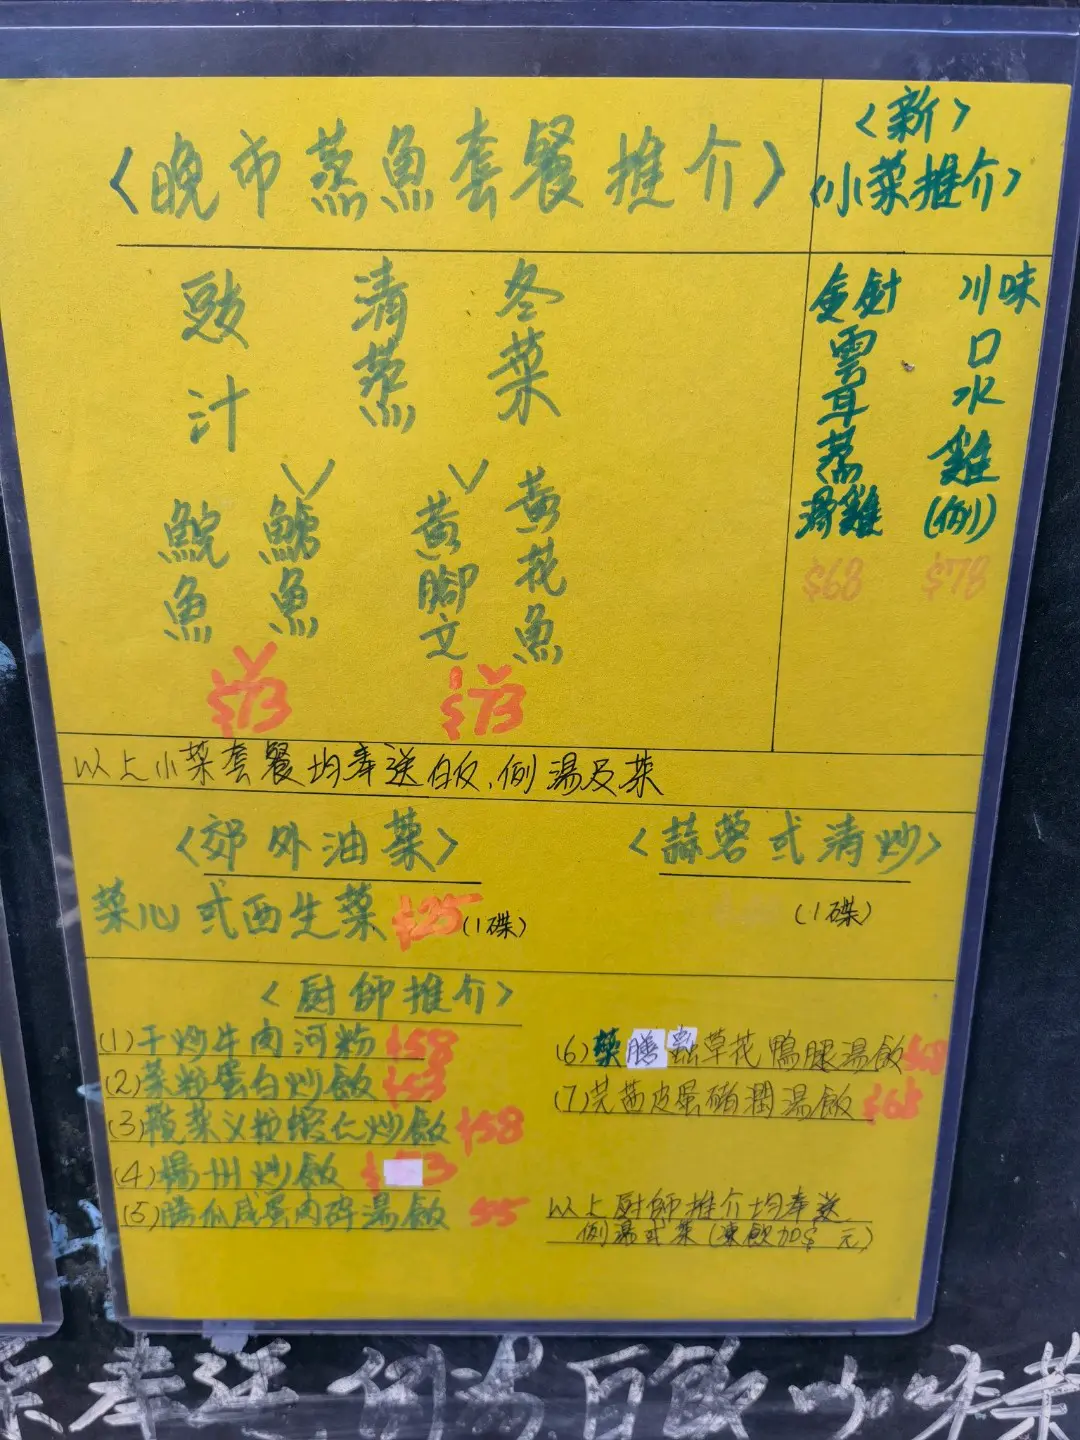 〈晚市蒸魚套餐推介〉
豉汁
清蒸
冬菜
鯇魚
鱸魚
黃腳立
黃花魚
$73
$73
〈新〉
〈小菜推介〉
金針雲耳蒸滑雞
$68
川味口水雞(例)
$78
以上小菜套餐均奉送白飯、例湯及菜
〈郊外油菜〉
菜心或西生菜 $25 (1碟)
〈蒜蓉或清炒〉
(1碟)
〈廚師推介〉
(1)干炒牛肉河粉 $58
(2)菜粒蛋白炒飯 $53
(3)欖菜叉粒蝦仁炒飯 $58
(4)揚州炒飯 $53
(5)勝瓜咸蛋肉碎湯飯 55
(6)藥膳虫草花鴨腿湯飯 $68
(7)芫茜皮蛋豬潤湯飯 $68
以上廚師推介均奉送
例湯或菜(凍飲加$ 元)
奉送 例湯 白飯
菜